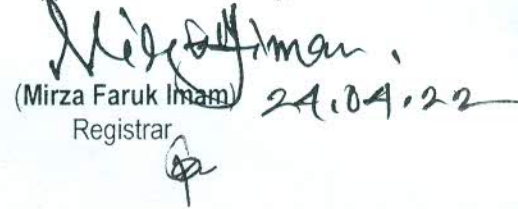 (Mirza Faruk Imam) 24.04.22
Registrar